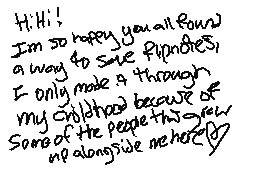 Hi Hi!
I'm so happy you all found
a way to save flipnotes,
I only made it through
my childhood because of
some of the people that grew
up alongside me here♡